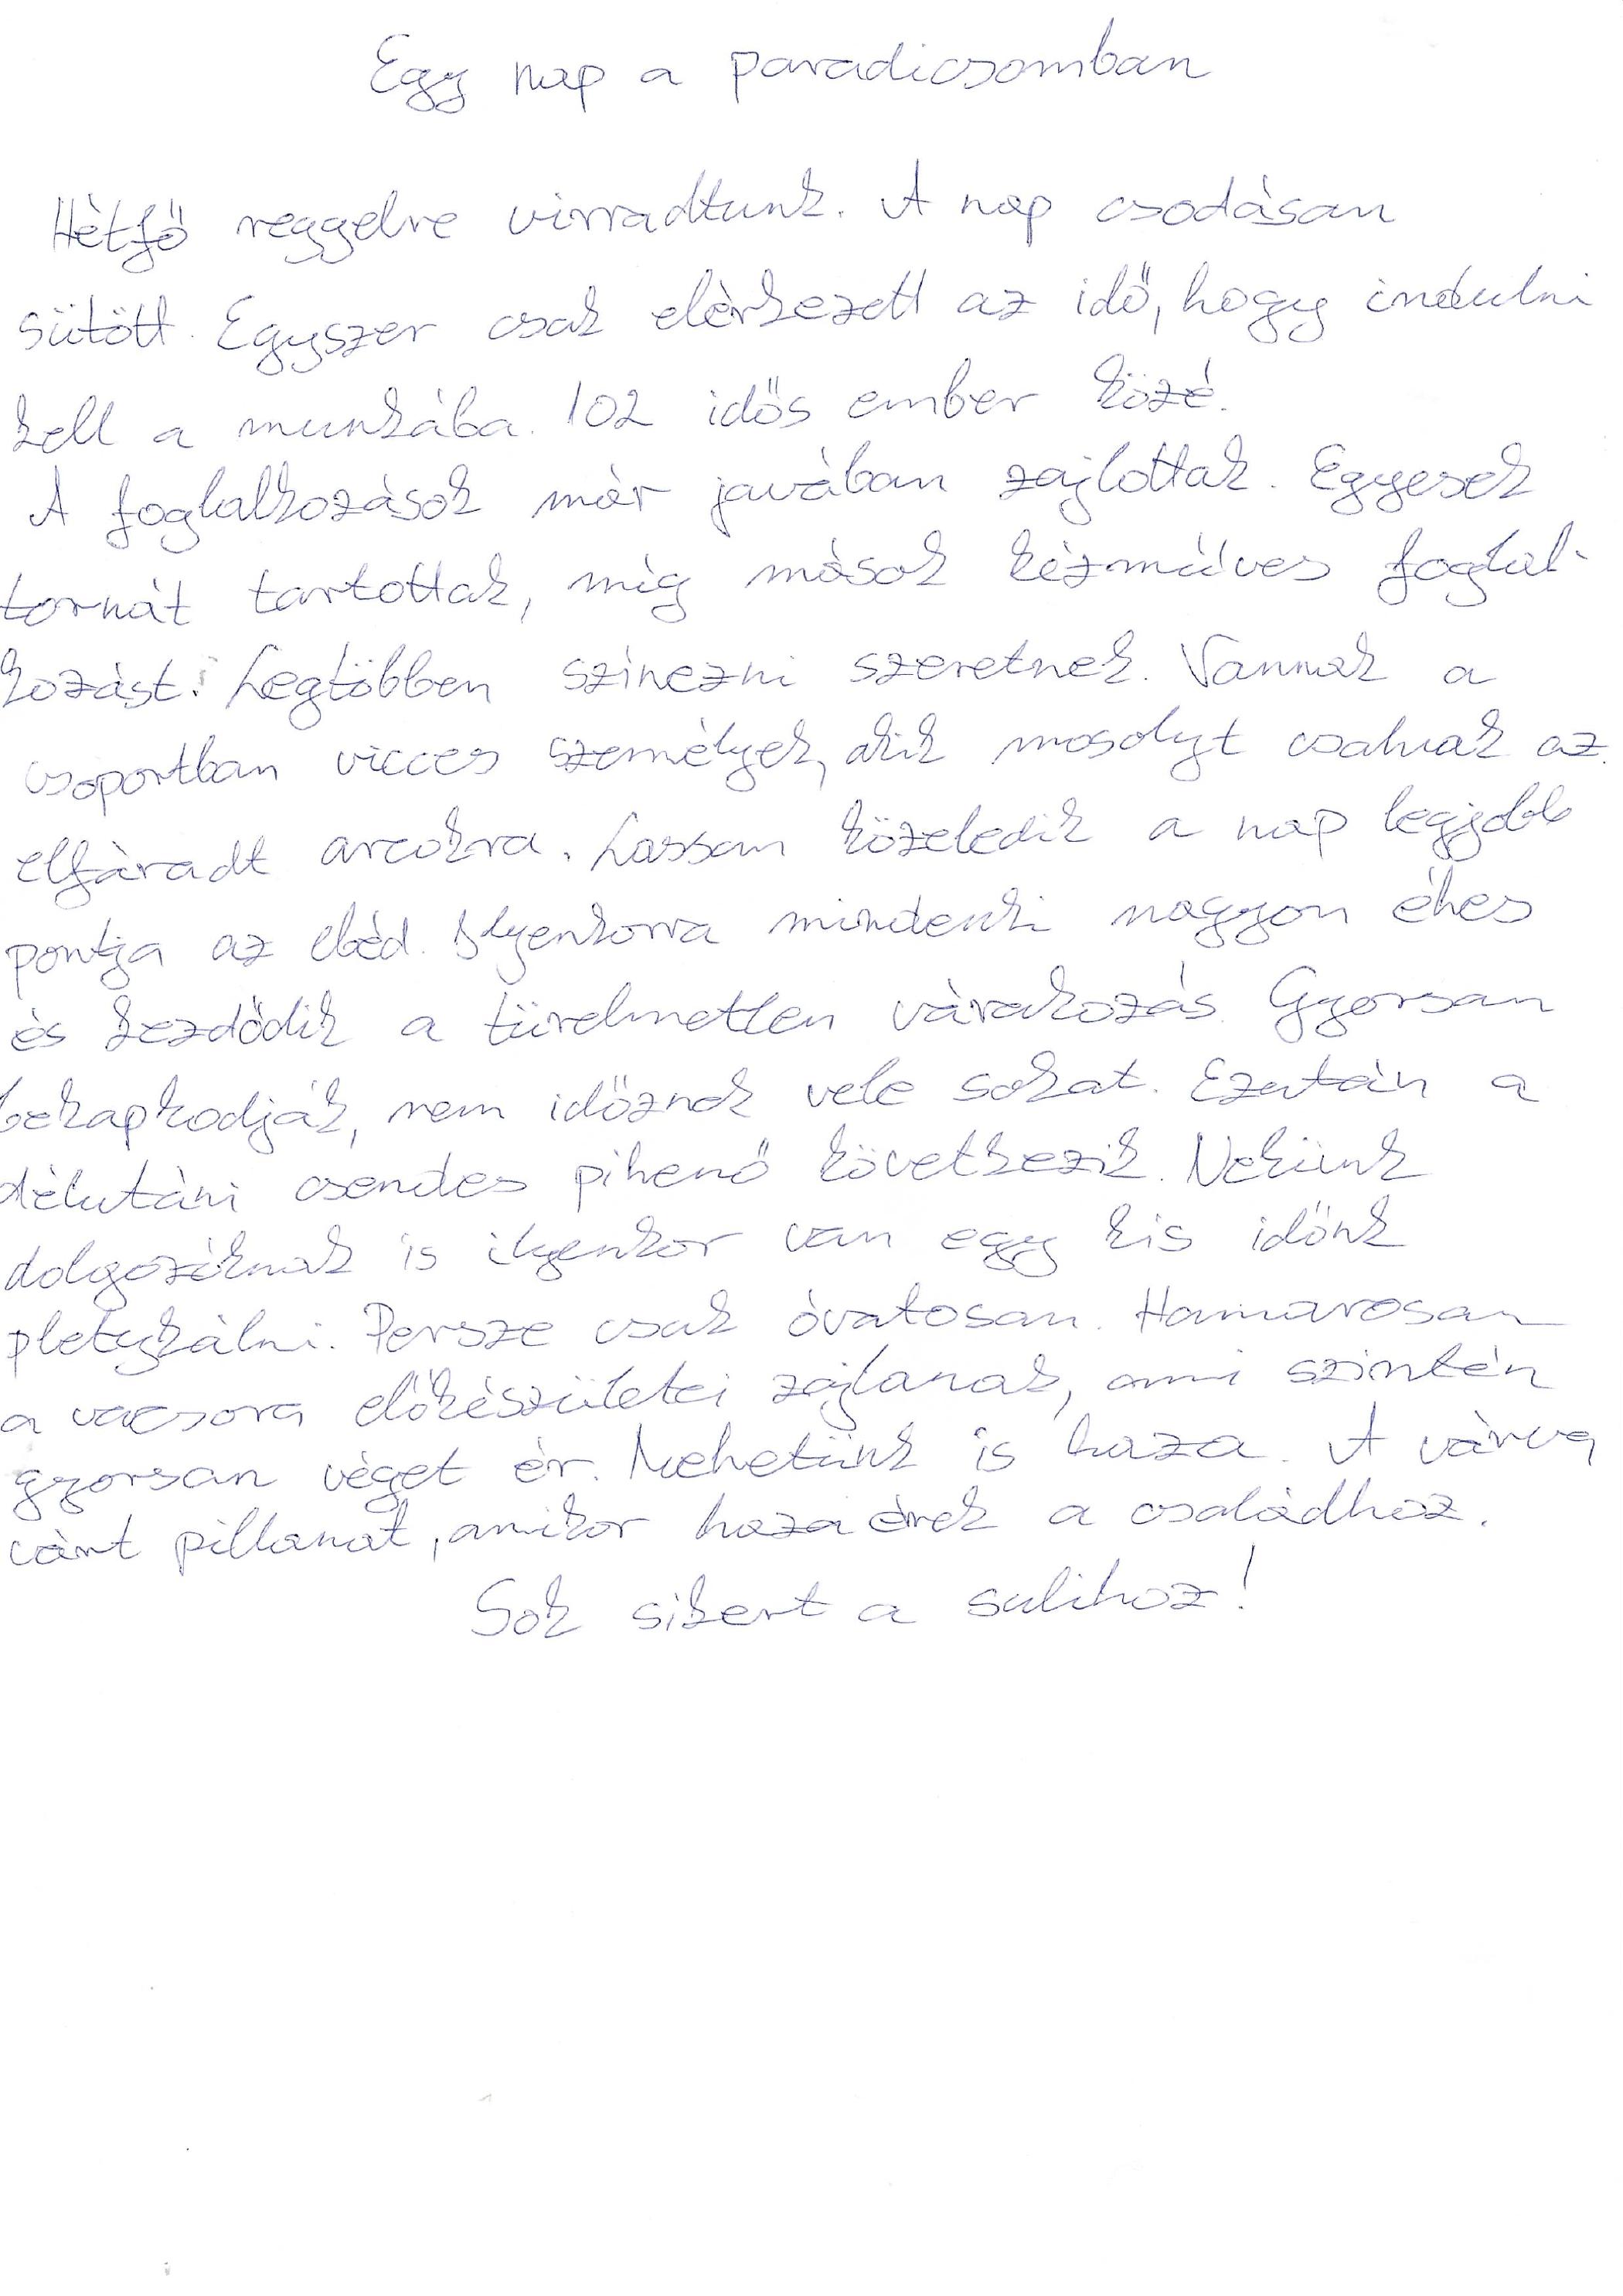 Egy nap a paradicsomban
Hétfő reggelre virradtunk. A nap csodásan
sütött. Egyszer csak elérkezett az idő, hogy indulni
kell a munkába. 102 idős ember közé.
A foglalkozások már javában zajlottak. Egyesek
tornát tartottak, míg mások kézműves foglal-
kozást. Legtöbben színezni szeretnek. Vannak a
csoportban vicces személyek, akik mosolyt csalnak az
elfáradt arcokra. Lassan közeledik a nap legjobb
pontja az ebéd. Ilyenkorra mindenki nagyon éhes
és kezdődik a türelmetlen várakozás. Gyorsan
bekapkodják, nem időznek vele sokat. Ezután a
délutáni csendes pihenő következik. Nekünk
dolgozóknak is ilyenkor van egy kis időnk
pletykálni. Persze csak óvatosan. Hamarosan
a vacsora előkészületei zajlanak, ami szintén
gyorsan véget ér. Mehetünk is haza. A várva
várt pillanat, amikor haza érek a családhoz.
Sok sikert a sulihoz!